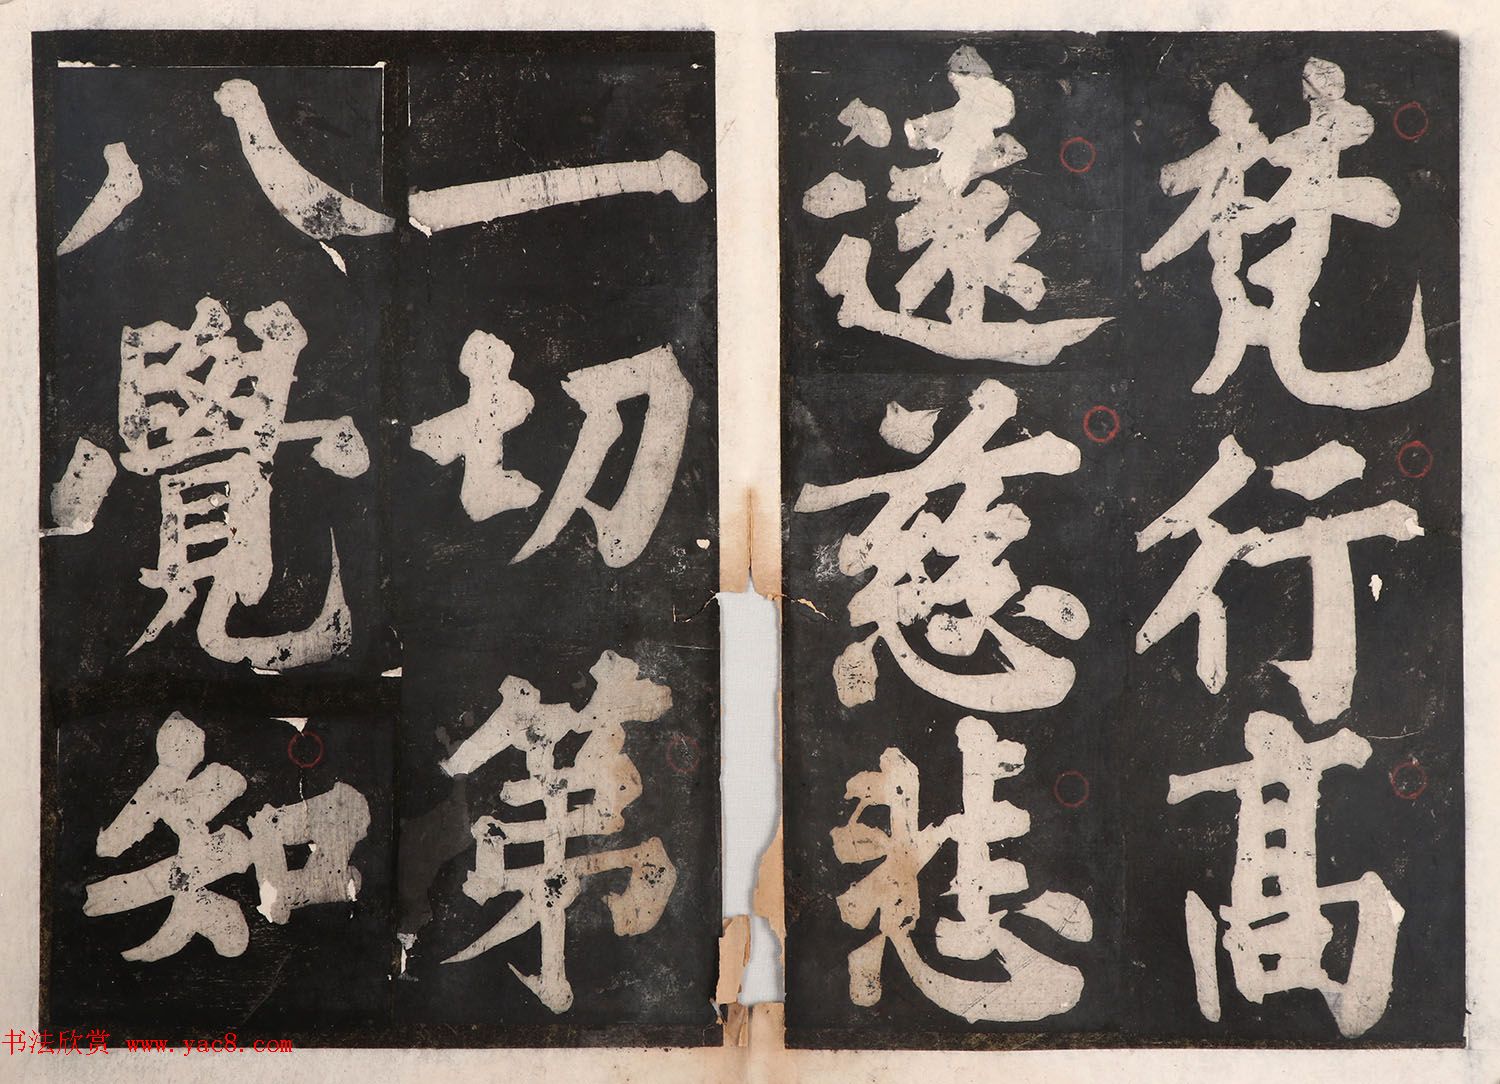 梵行高
遠慈悲
一切第
八覺知
书法欣赏 www.yac8.com